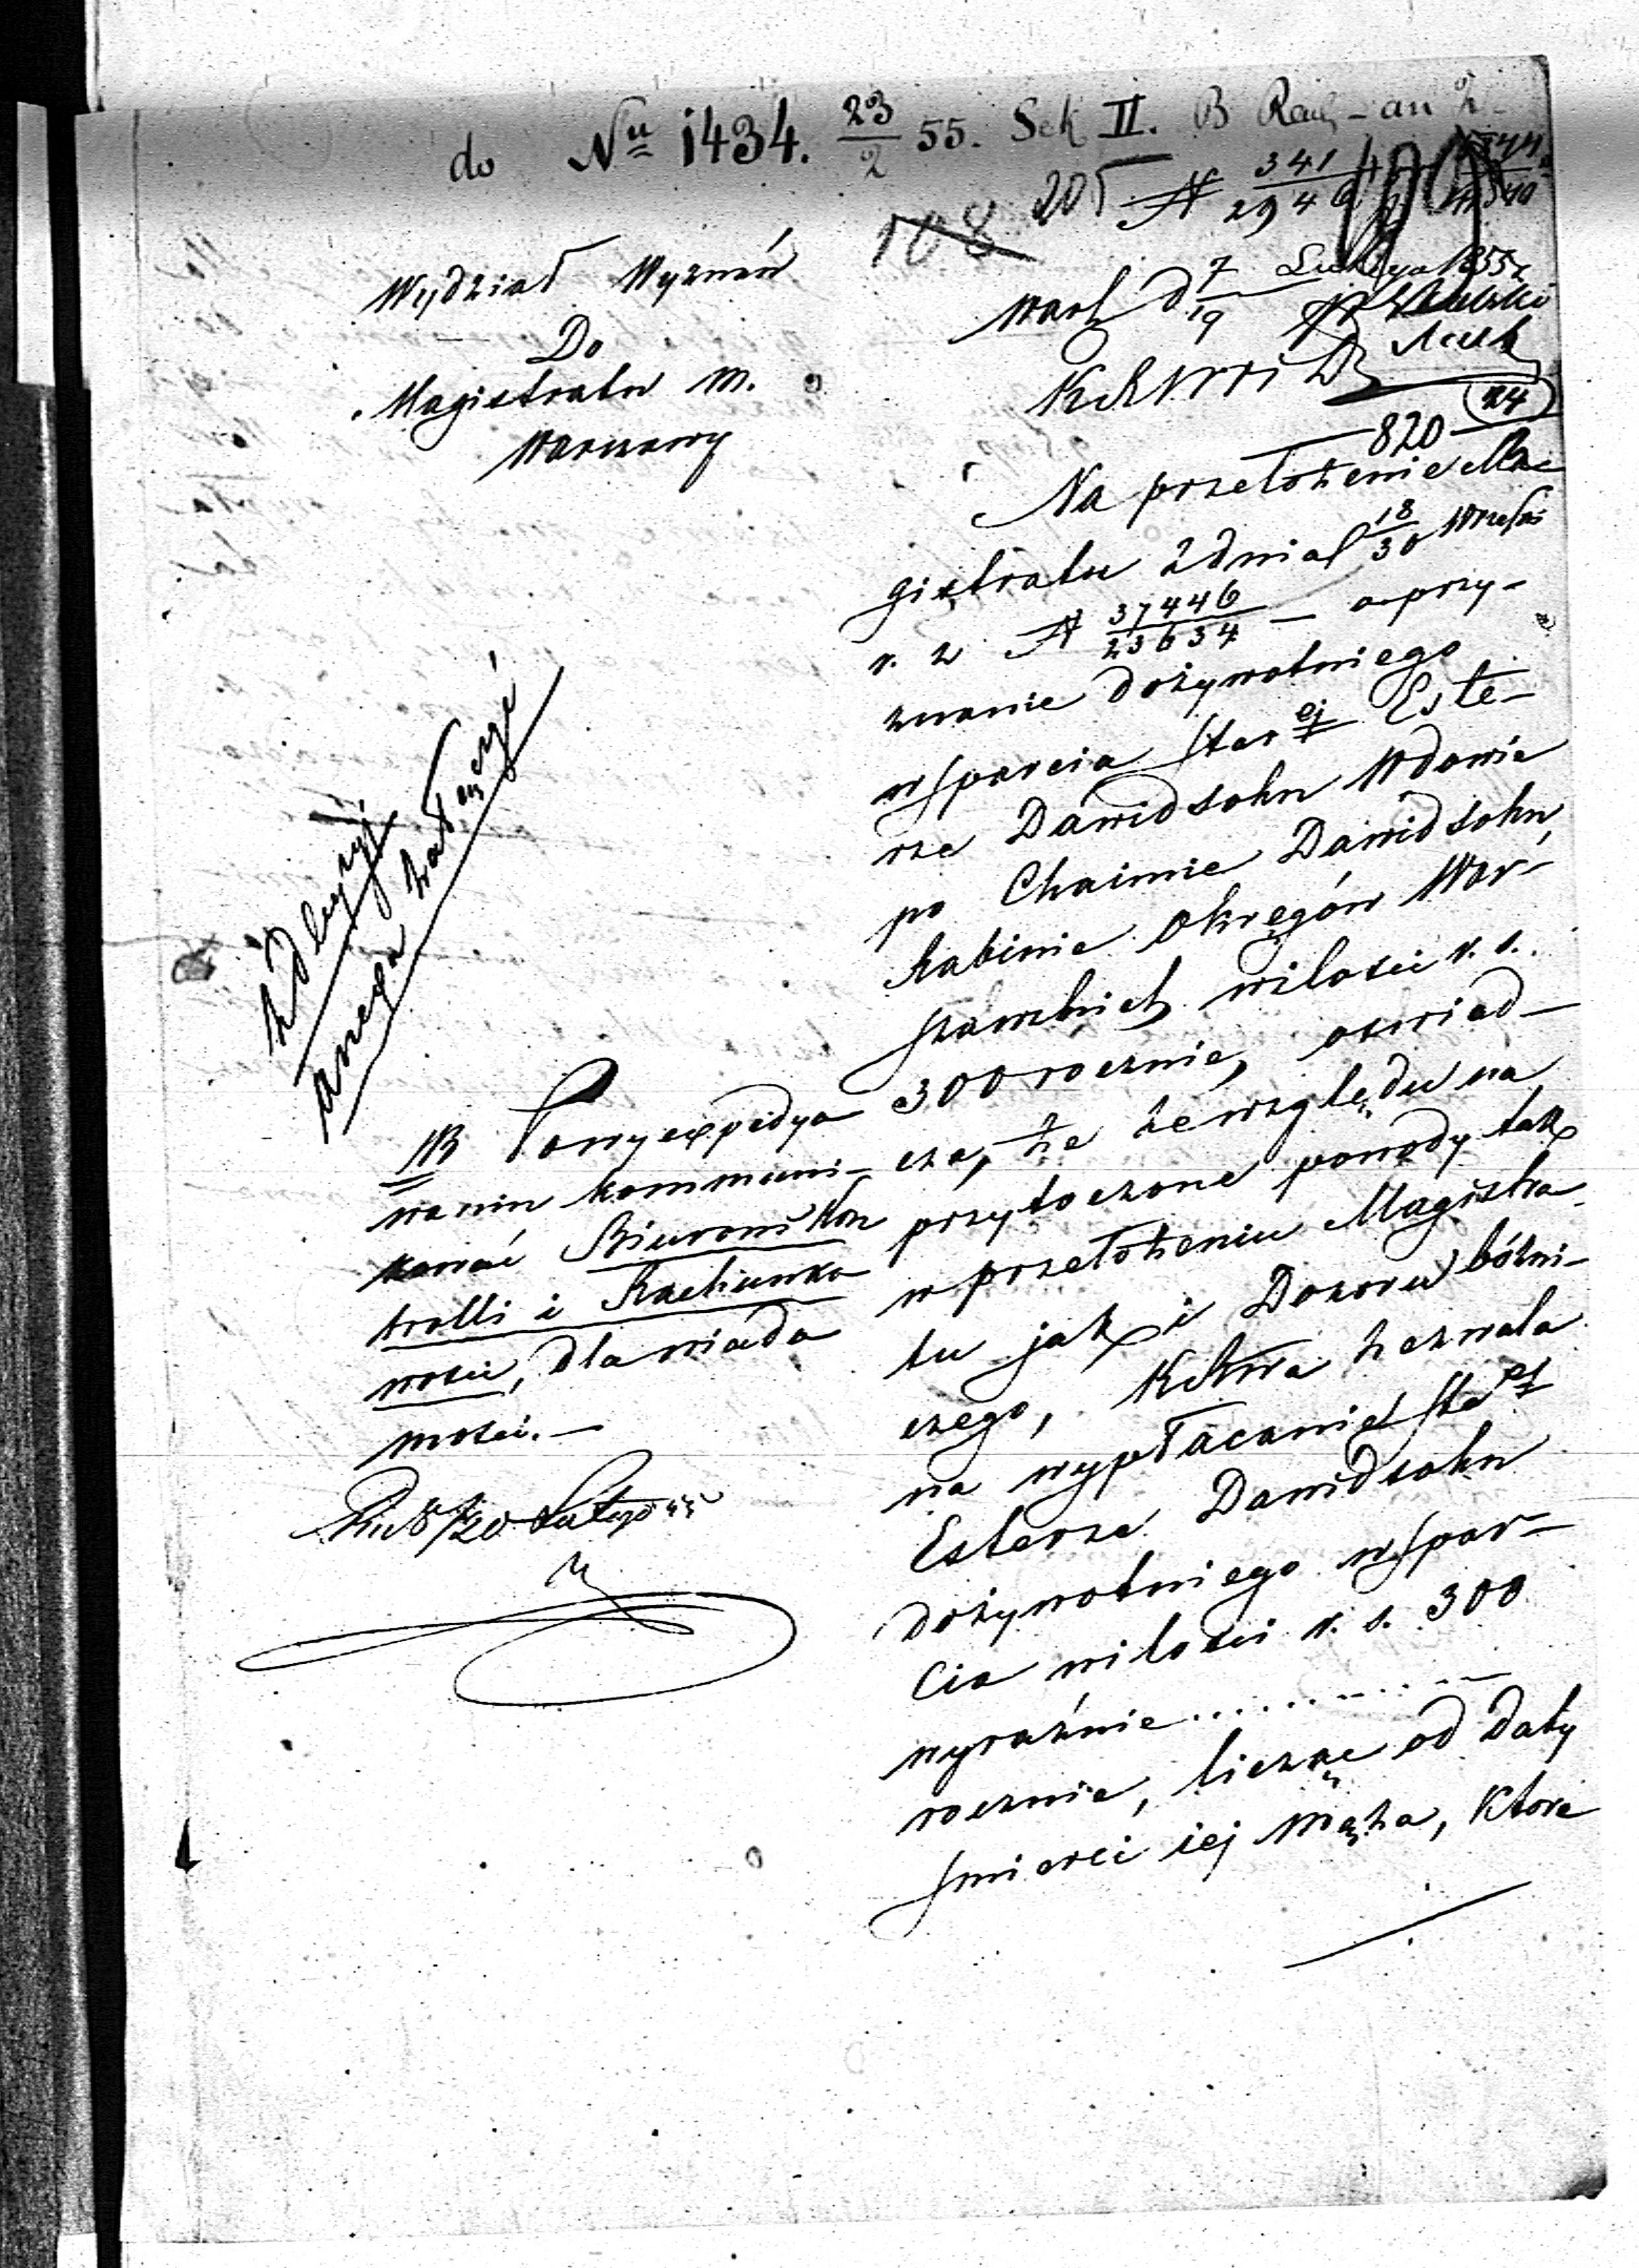 do Nu 1434. 23/2 55. Sek II. B
108 205 N 341/2946
Wydział Wyznań
Do
Magistratu M.
Warszawy
Warsz d 7/19 Lutego 1855 r
KRSWiD
820 24
Na przełożenie Ma-
gistratu z dnia 18/30 Wrześ
r. z N 37446/23634 — o przy-
znanie dożywotniego
wsparcia Starej Este-
rze Dawidsohn Wdowie
po Chaimie Dawidsohn,
Rabinie Okręgów War-
szawskich wilości r. s.
300 rocznie, oswiad-
cza, że ze względu na
przytoczone powody tak
w przełożeniu Magistra-
tu jak i Dozoru bóżni-
czego, zezwala
na wypłacanie Star
Esterze Dawidsohn
dożywotniego wspar-
cia wilości r. s. 300
wyraźnie . . . . . . . . . .
rocznie, licząc od daty
smierci iej Męża, które
załączyć
NB Po wyexpedyo
waniu kommuni-
kować Biurowi Kon
trolli i Rachunko
wości, dla wiado
mości. —
8/20 Lutego 55